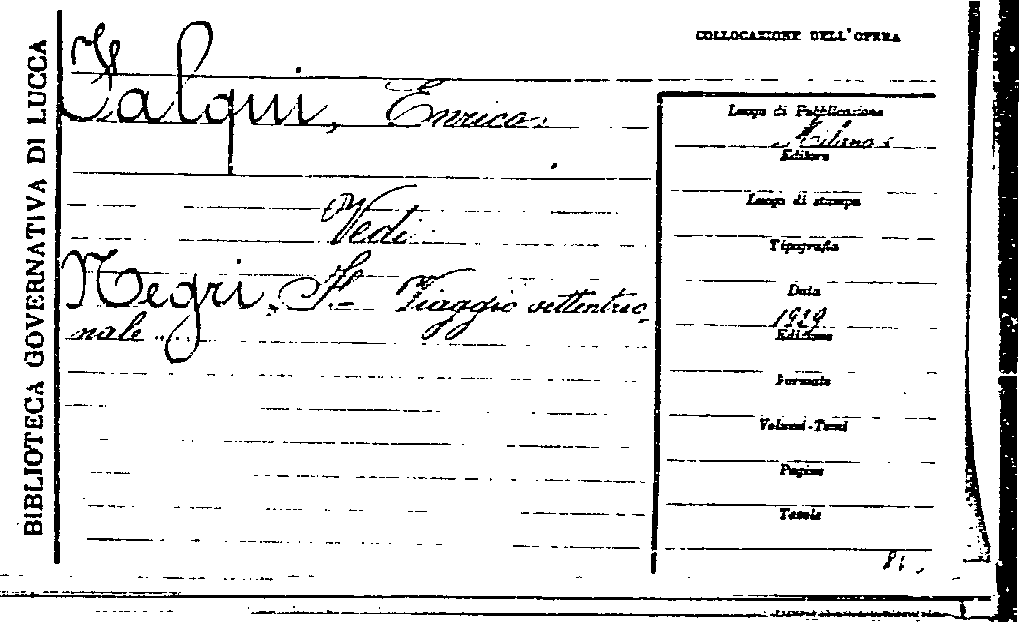 BIBLIOTECA GOVERNATIVA DI LUCCA
COLLOCAZIONE DELL'OPERA
Falqui, Enrico.
Vedi
Negri, F. Viaggio settentrio-
nale ...
Luogo di Pubblicazione
Milano
Editore
Luogo di stampa
Tipografia
Data
1929
Edizione
Formato
Volumi-Tomi
Pagine
Tavole